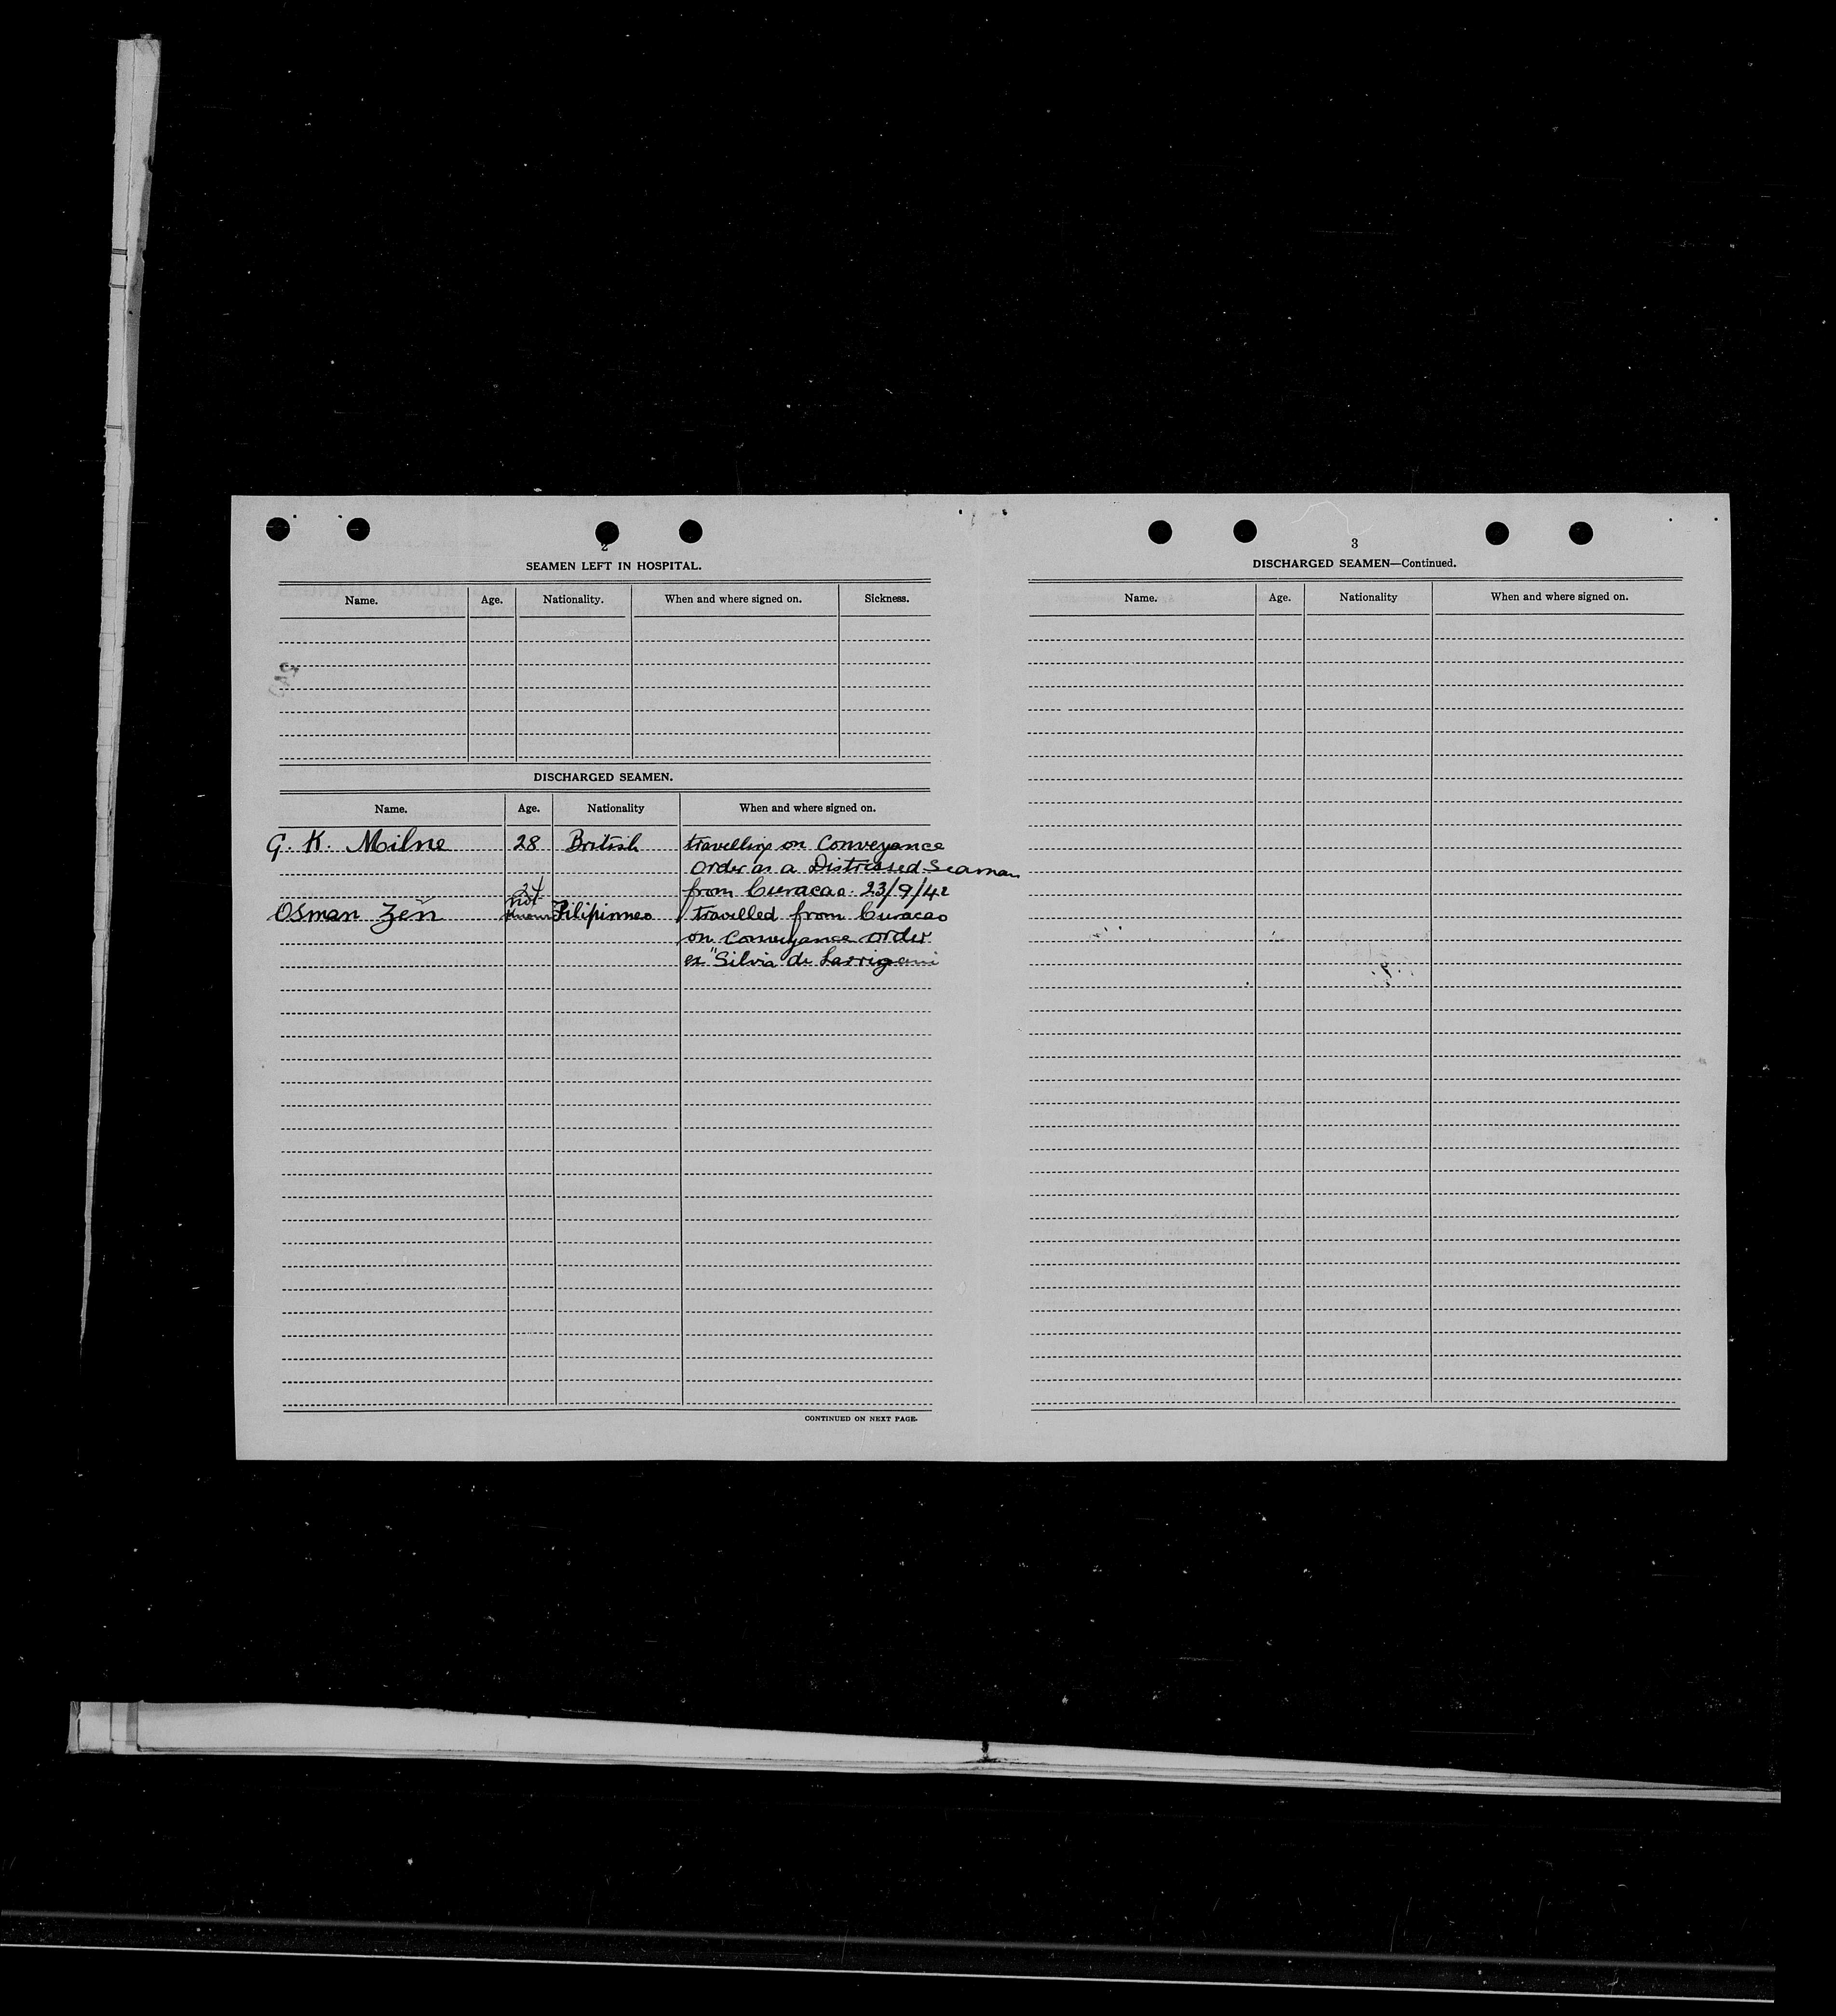 2
SEAMEN LEFT IN HOSPITAL.
Name. Age. Nationality. When and where signed on. Sickness.
DISCHARGED SEAMEN.
Name. Age. Nationality When and where signed on.
G. K. Milne 28 British travelling on Conveyance
Order as a Distressed Seaman
24 from Curacao. 23/9/42
not
Osman Zen known Filipinneo travelled from Curacao
on Conveyance order
ex "Silvia de Larrigani
CONTINUED ON NEXT PAGE.
3
DISCHARGED SEAMEN—Continued.
Name. Age. Nationality When and where signed on.